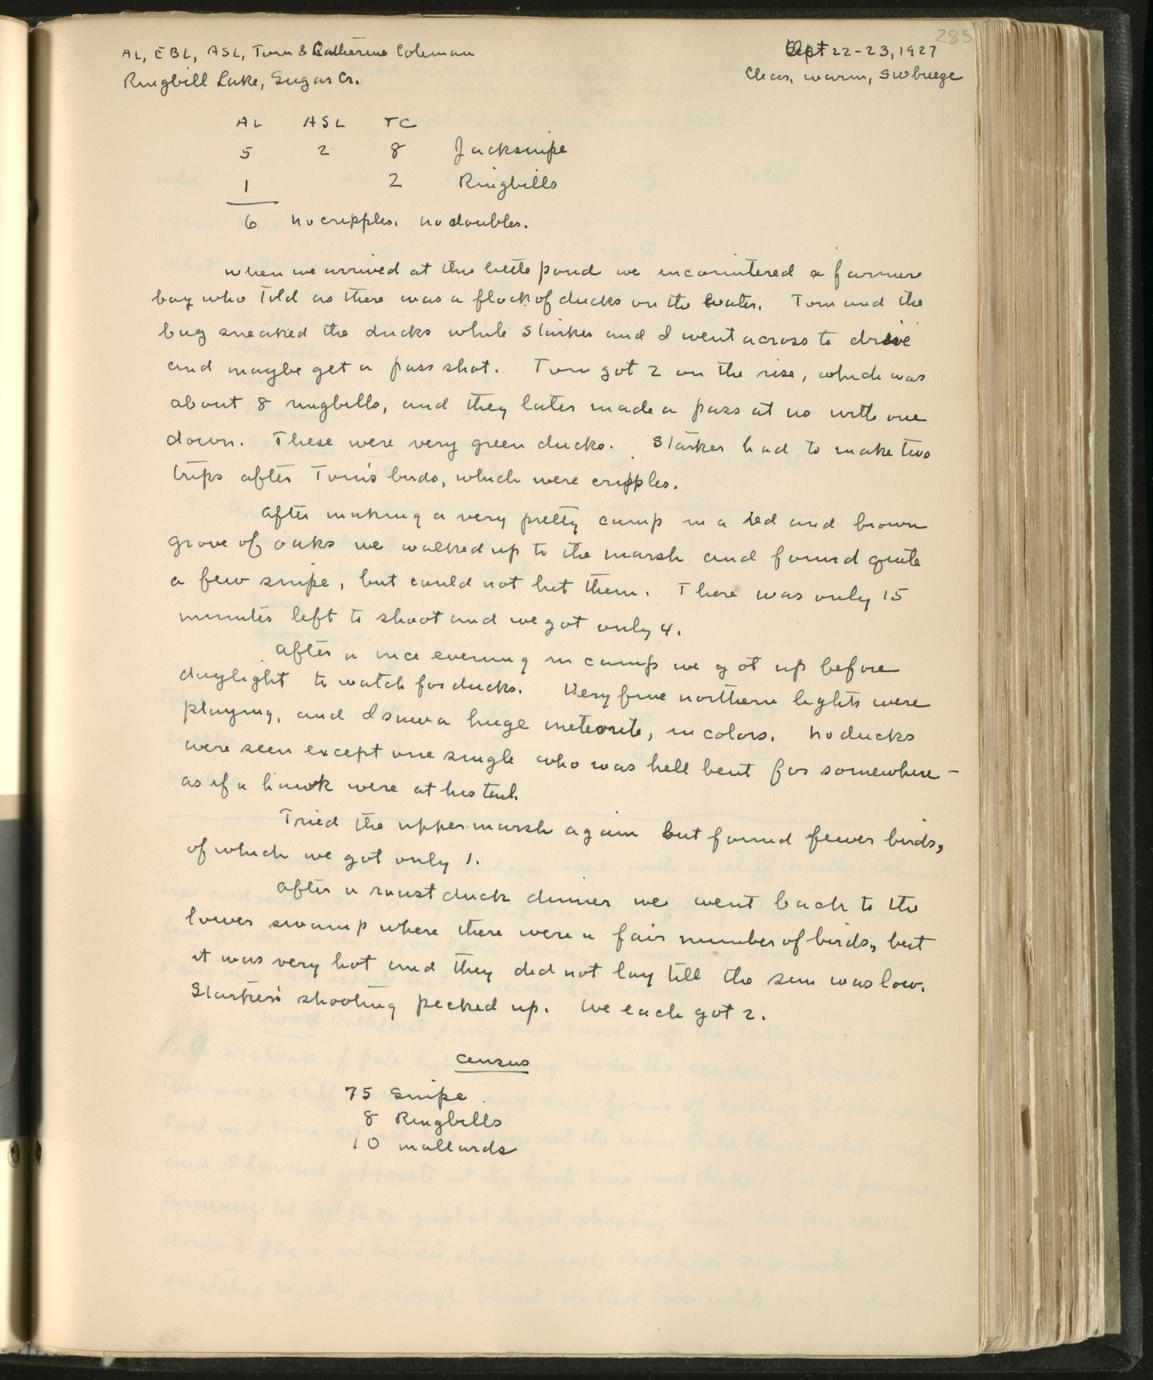 285
AL, EBL, ASL, Tom & Catherine Coleman
Sept 22-23, 1927
Ringbill Lake, Sugar Cr.
Clear, warm, SW breeze
AL ASL TC
5 2 8 Jacksnipe
1 2 Ringbills
6 no cripples. no doubles.
When we arrived at this little pond we encountered a farmer
boy who told us there was a flock of ducks on the water. Tom and the
boy sneaked the ducks while Starker and I went across to drive
and maybe get a pass shot. Tom got 2 on the rise, which was
about 8 ringbills, and they later made a pass at us with one
down. These were very green ducks. Starker had to make two
trips after Tom's birds, which were cripples.
After making a very pretty camp in a red and brown
grove of oaks we walked up to the marsh and found quite
a few snipe, but could not hit them. There was only 15
minutes left to shoot and we got only 4.
After a nice evening in camp we got up before
daylight to watch for ducks. Very fine northern lights were
playing, and I saw a huge meteorite, in colors. No ducks
were seen except one single who was hell bent for somewhere -
as if a hawk were at his tail.
Tried the upper marsh again but found fewer birds,
of which we got only 1.
After a roast duck dinner we went back to the
lower swamp where there were a fair number of birds, but
it was very hot and they did not lay till the sun was low.
Starker's shooting pecked up. We each got 2.
Census
75 Snipe
8 Ringbills
10 mallards